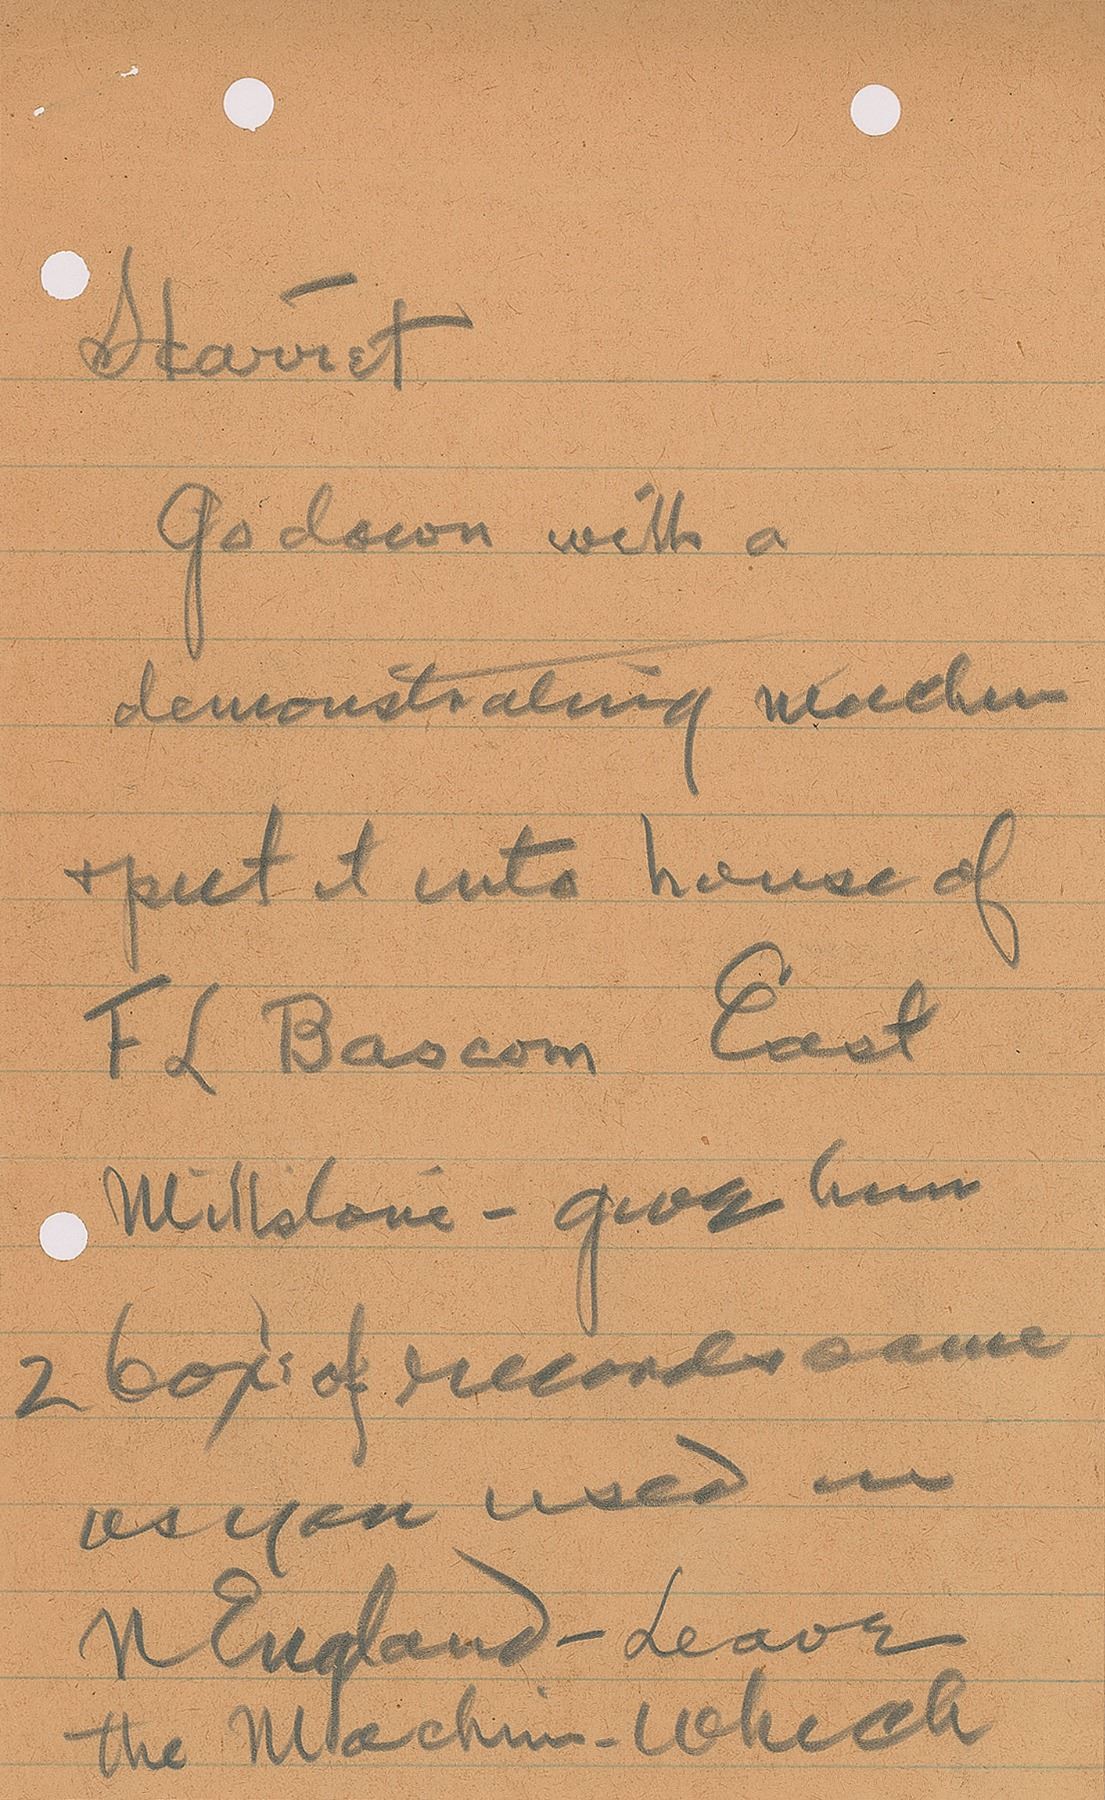 Starret
Go down with a
demonstrating machin
+ put it into house of
F L Bascom East
Millstone - give him
2 box's of records same
as you used in
N England - Leave
the Machin - which